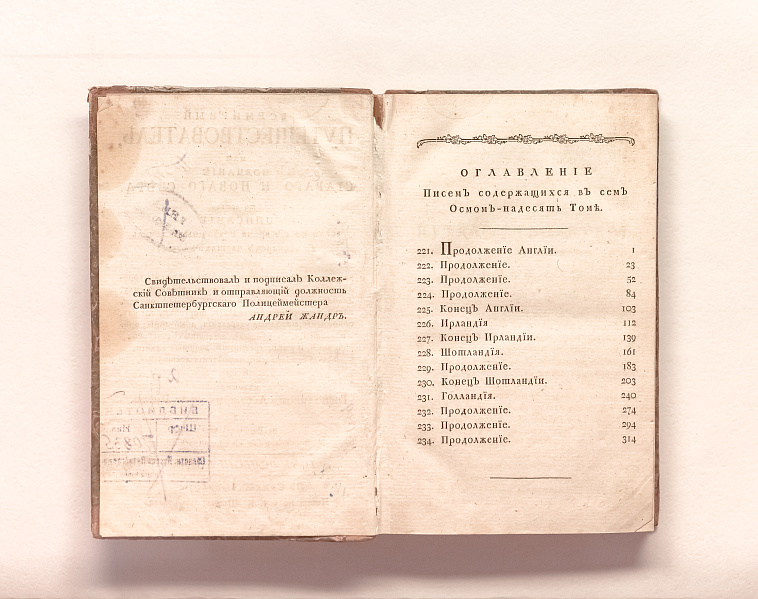 Свидѣтельствовалъ и подписалъ Коллеж-
скій Совѣтникъ и отправляющій должность
Санктпетербургскаго Полицеймейстера
АНДРЕЙ ЖАНДРЪ.
ОГЛАВЛЕНІЕ
Писемъ содержащихся въ семъ
Осмомъ-надесять Томѣ.
221. Продолженїе Англїи. 1
222. Продолженїе. 23
223. Продолженїе. 52
224. Продолженїе. 84
225. Конецъ Англїи. 103
226. Ирландїя 112
227. Конецъ Ирландїи. 139
228. Шотландїя. 161
229. Продолженїе. 183
230. Конецъ Шотландїи. 203
231. Голландїя. 240
232. Продолженїе. 274
233. Продолженїе. 294
234. Продолженїе. 314